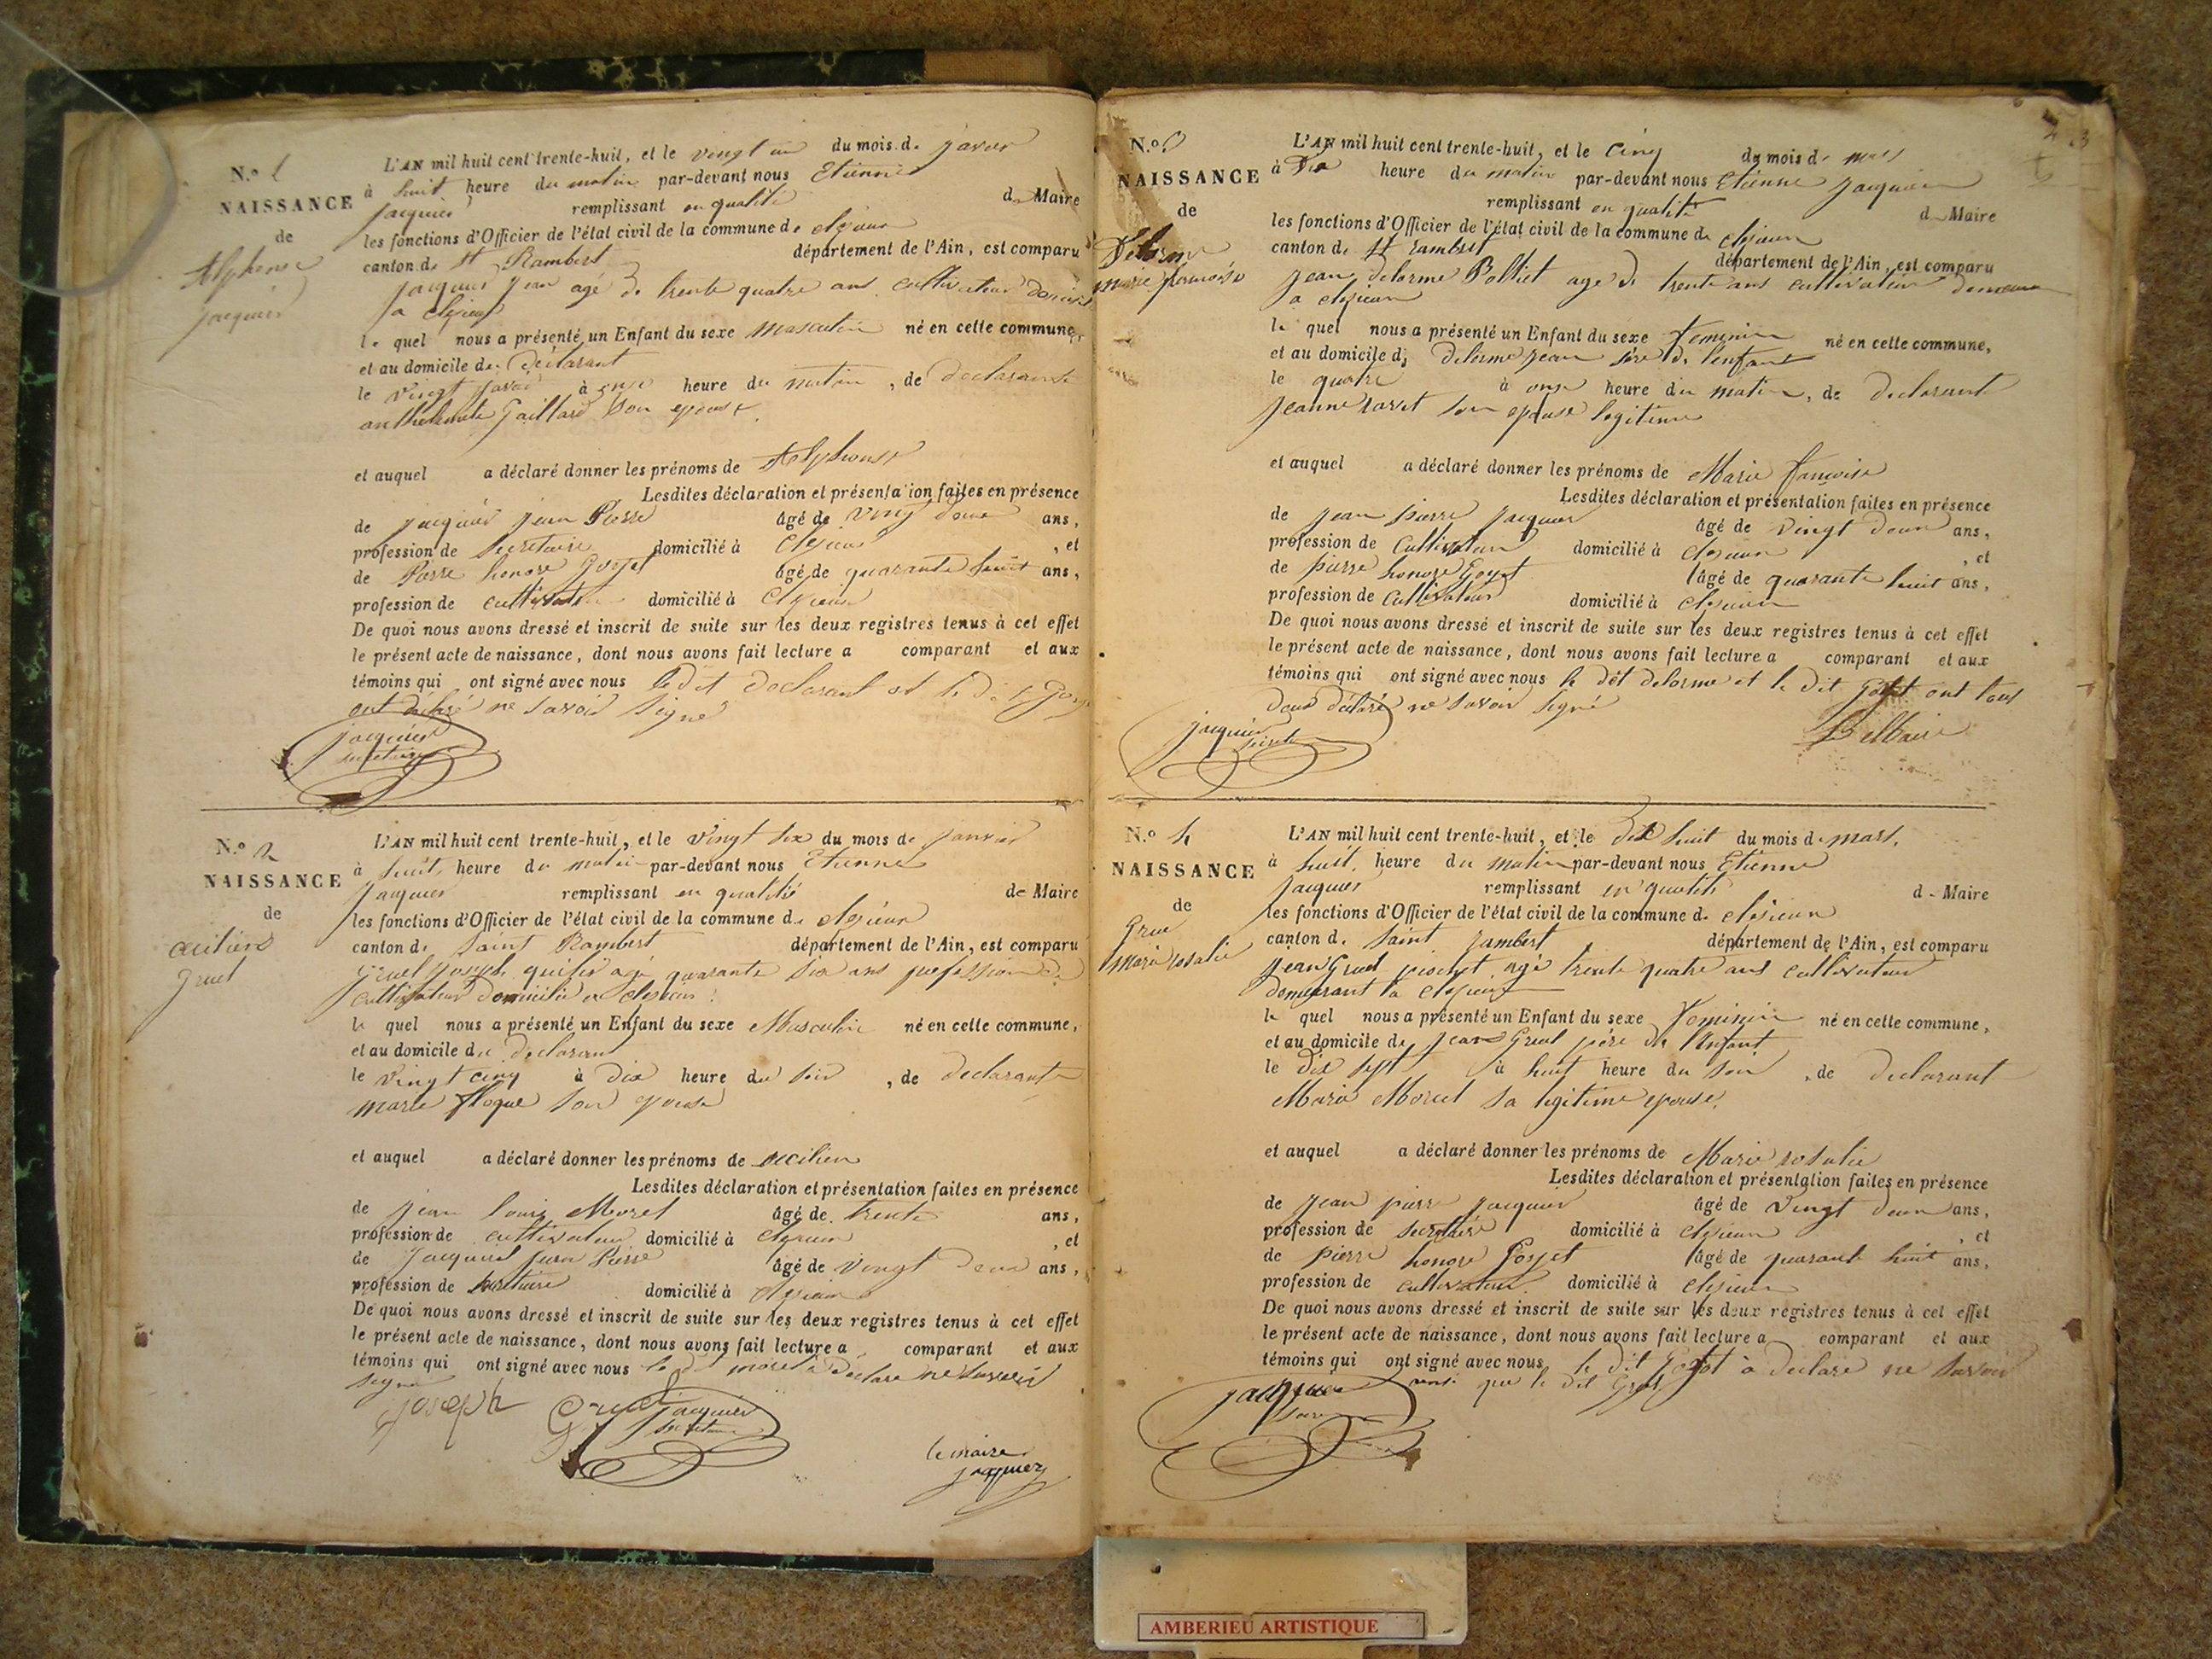 N.º 1
NAISSANCE
de
Alphonse
jacquier
L'AN mil huit cent trente-huit, et le vingt un du mois de janvier
à huit heure du matin par-devant nous Etienne
jacquier remplissant en qualité de Maire
les fonctions d'Officier de l'état civil de la commune de clezieux
canton de St Rambert département de l'Ain, est comparu
jacquier jean agé de trente quatre ans cultivateur
a clezieux
le quel nous a présenté un Enfant du sexe masculin né en cette commune,
et au domicile du déclarant
le vingt janvier à onze heure du matin, de declarante
anthelmette gaillard son epouse
et auquel a déclaré donner les prénoms de Alphonse
Lesdites déclaration et présentation faites en présence
de jacquier jean Pierre âgé de vingt deux ans,
profession de secretaire domicilié à clezieux, et
de Pierre honore goyet âgé de quarante huit ans,
profession de cultivateur domicilié à clezieux
De quoi nous avons dressé et inscrit de suite sur les deux registres tenus à cet effet
le présent acte de naissance, dont nous avons fait lecture a comparant et aux
témoins qui ont signé avec nous le dit declarant et le dit
ont déclaré ne savoir signé
jacquier
secretaire
N.º 2
NAISSANCE
de
cecilien
gruel
L'AN mil huit cent trente-huit, et le vingt six du mois de janvier
à huit heure du matin par-devant nous Etienne
jacquier remplissant en qualité de Maire
les fonctions d'Officier de l'état civil de la commune de clezieux
canton de Saint Rambert département de l'Ain, est comparu
gruel joseph agé quarante six ans profession de
cultivateur domicilié a clezieux
le quel nous a présenté un Enfant du sexe Masculin né en cette commune,
et au domicile du declarant
le vingt cinq à dix heure du soir, de declarante
marie son epouse
et auquel a déclaré donner les prénoms de cecilien
Lesdites déclaration et présentation faites en présence
de jean louis Morel âgé de trente ans,
profession de cultivateur domicilié à clezieux, et
de jacquier jean Pierre âgé de vingt deux ans,
profession de secretaire domicilié à clezieux
De quoi nous avons dressé et inscrit de suite sur les deux registres tenus à cet effet
le présent acte de naissance, dont nous avons fait lecture a comparant et aux
témoins qui ont signé avec nous le dit morel a déclaré ne savoir
signé
joseph Gruel jacquier
secretaire
le maire
jacquier
N.º 3
NAISSANCE
de
Delorme
marie françoise
L'AN mil huit cent trente-huit, et le cinq du mois de mars
à dix heure du matin par-devant nous Etienne jacquier
remplissant en qualité de Maire
les fonctions d'Officier de l'état civil de la commune de clezieux
canton de St rambert département de l'Ain, est comparu
jean delorme agé de trente ans cultivateur
a clezieux
le quel nous a présenté un Enfant du sexe feminin né en cette commune,
et au domicile de delorme jean père de l'enfant
le quatre à onze heure du matin, de declarant
jeanne son epouse legitime
et auquel a déclaré donner les prénoms de Marie françoise
Lesdites déclaration et présentation faites en présence
de jean pierre jacquier âgé de vingt deux ans,
profession de cultivateur domicilié à clezieux, et
de pierre honore Goyet âgé de quarante huit ans,
profession de cultivateur domicilié à clezieux
De quoi nous avons dressé et inscrit de suite sur les deux registres tenus à cet effet
le présent acte de naissance, dont nous avons fait lecture a comparant et aux
témoins qui ont signé avec nous le dit delorme et le dit goyet ont tous
deux déclaré ne savoir signé
jacquier
Le Maire
N.º 4
NAISSANCE
de
Gruel
marie rosalie
L'AN mil huit cent trente-huit, et le dix huit du mois de mars,
à huit heure du matin par-devant nous Etienne
jacquier remplissant en qualité de Maire
les fonctions d'Officier de l'état civil de la commune de clezieux
canton de Saint rambert département de l'Ain, est comparu
jean Gruel agé trente quatre ans cultivateur
demeurant a clezieux
le quel nous a présenté un Enfant du sexe feminin né en cette commune,
et au domicile de jean Gruel père de l'enfant
le dix sept à huit heure du soir, de declarant
Marie Morel sa legitime epouse,
et auquel a déclaré donner les prénoms de Marie rosalie
Lesdites déclaration et présentation faites en présence
de jean pierre jacquier âgé de vingt deux ans,
profession de secretaire domicilié à clezieux, et
de pierre honore Goyet âgé de quarante huit ans,
profession de cultivateur domicilié à clezieux
De quoi nous avons dressé et inscrit de suite sur les deux registres tenus à cet effet
le présent acte de naissance, dont nous avons fait lecture a comparant et aux
témoins qui ont signé avec nous le dit Goyet à declare ne savoir
que le dit Gruel
jacquier
AMBERIEU ARTISTIQUE